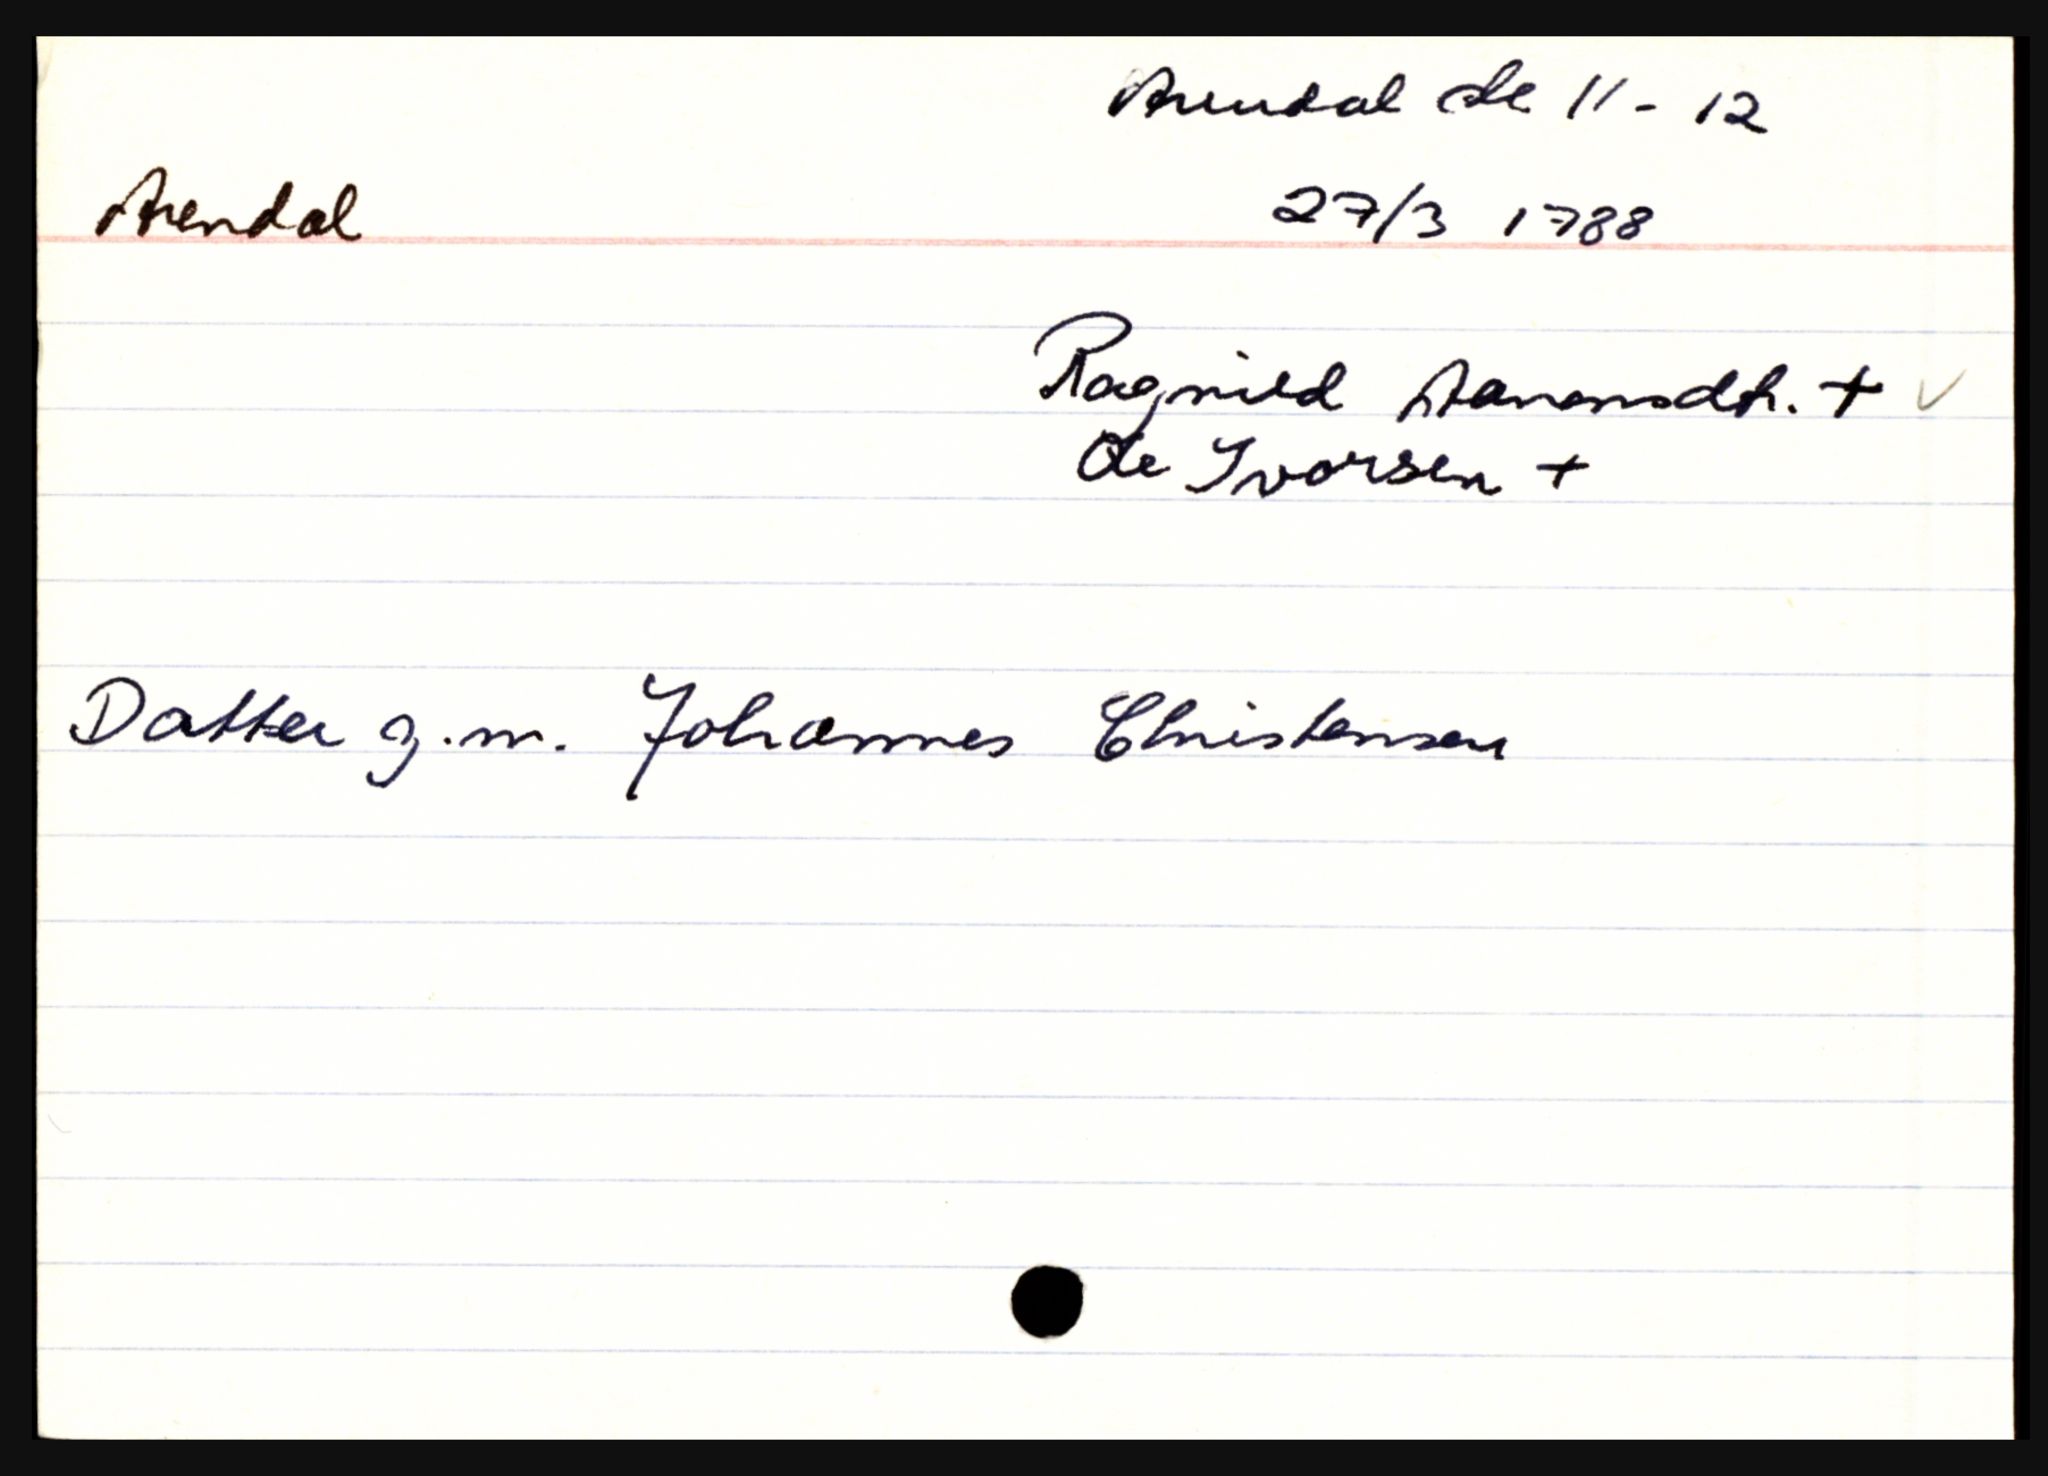 Arendal de 11-12
Arendal
27/3 1788
Ragnild Aanensdtr. + ✓
Ole Ivarsen +
Datter g.m. Johannes Christensen